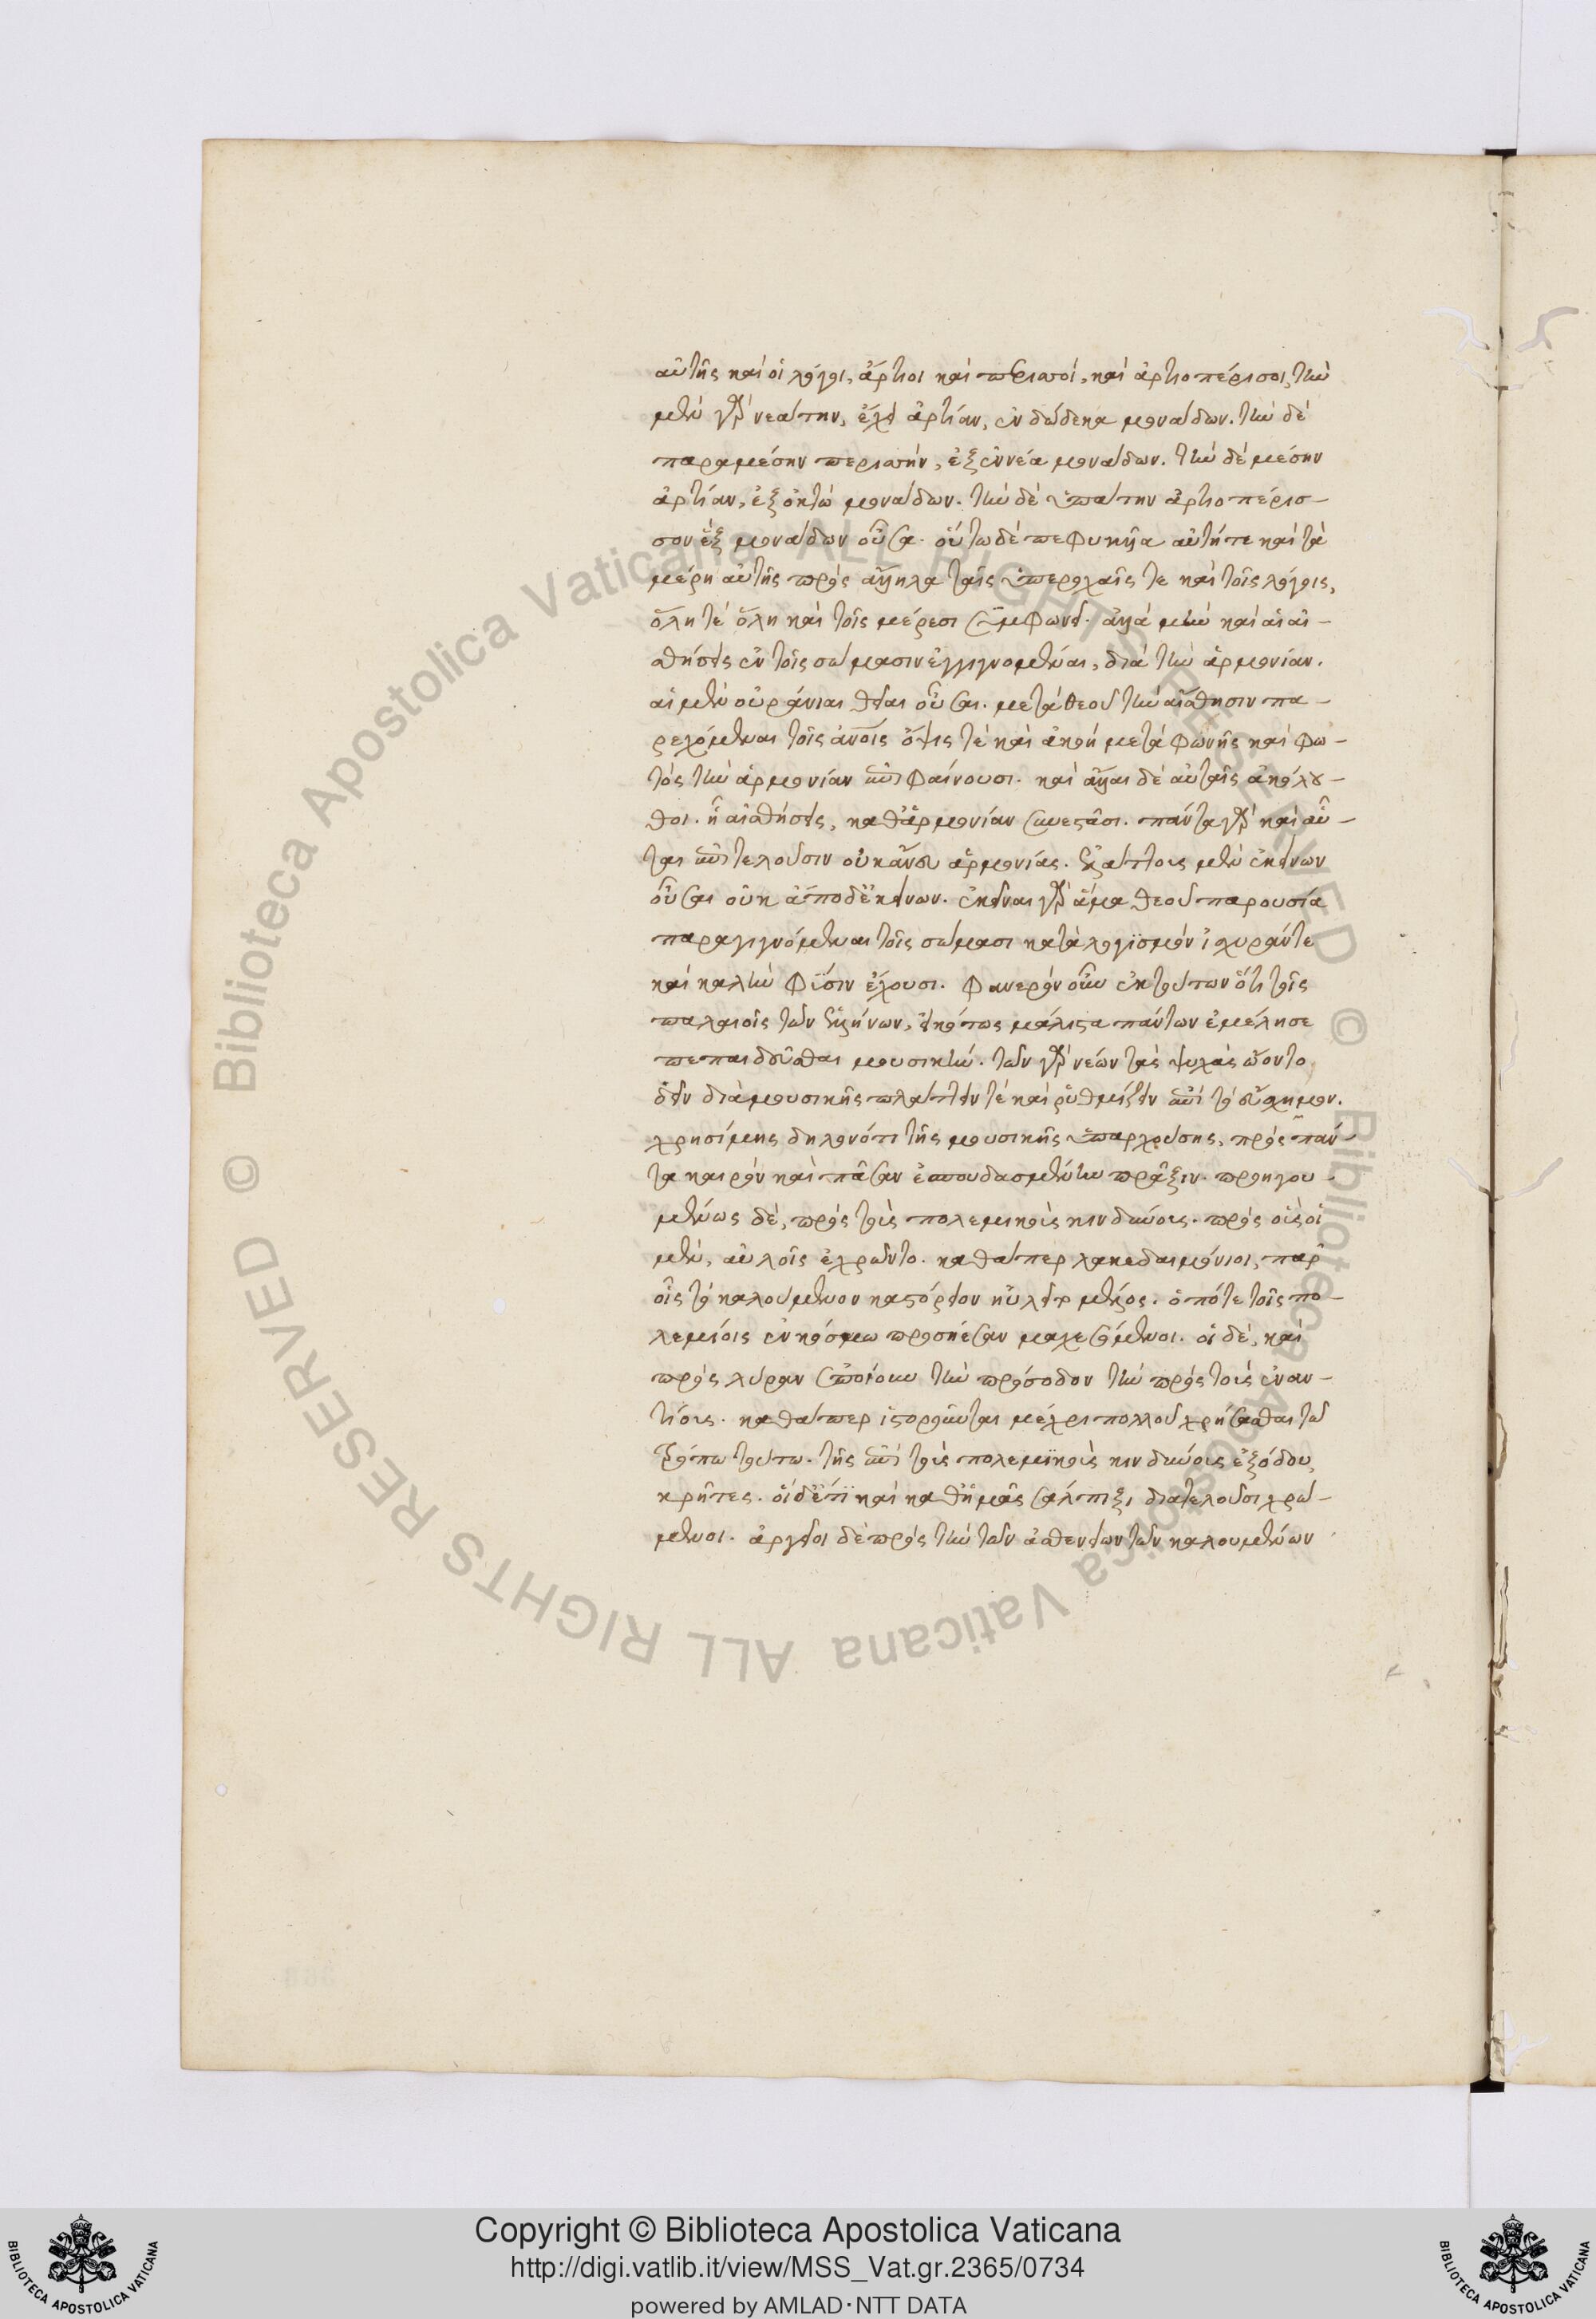 αὐτῆς καὶ οἱ λόγοι, ἄρτιοι καὶ περισσοί, καὶ ἀρτιοπέρισσοι, τὴν
μὲν γὰρ νεάτην, ἔχει ἀρτίαν, ἐν δώδεκα μονάδων. τὴν δὲ
παραμέσην περισσὴν, ἐξ ἐννέα μονάδων. τὴν δὲ μέσην
ἀρτίαν, ἐξ ὀκτὼ μονάδων. τὴν δὲ ὑπάτην ἀρτιοπέρισ-
σον ἓξ μονάδων οὖσα. οὕτω δὲ πεφυκῖα αὐτή τε καὶ τὰ
μέρη αὐτῆς πρὸς ἄλληλα ταῖς ὑπεροχαῖς τε καὶ τοῖς λόγοις,
ὅλη τὲ ὅλη καὶ τοῖς μέρεσι συμφωνεῖ. ἀλλὰ μὴν καὶ αἱ αἰ-
σθήσεις ἐν τοῖς σώμασιν ἐγγιγνομέναι, διὰ τὴν ἁρμονίαν.
αἱ μὲν οὐράνιαι θεῖαι οὖσαι. μετὰ θεοῦ τὴν αἴσθησιν πα-
ρεχόμεναι τοῖς ἀνοις ὄψις τὲ καὶ ἀκοὴ μετὰ φωνῆς καὶ φω-
τὸς τὴν ἁρμονίαν ἐπιφαίνουσι. καὶ ἄλλαι δὲ αὐταῖς ἀκόλου-
θοι. ἢ αἰσθήσεις, καθ' ἁρμονίαν συνεστᾶσι. πάντα γὰρ καὶ αὗ-
ται ἐπιτελοῦσιν οὐκ ἄνευ ἁρμονίας. ἐλάττους μὲν ἐκείνων
οὖσαι οὐκ ἄπο δ' ἐκείνων. ἐκεῖναι γὰρ ἅμα θεοῦ παρουσία
παραγιγνόμεναι τοῖς σώμασι κατὰ λογϊσμὸν ἰσχυράν τε
καὶ καλὴν φύσιν ἔχουσι. φανερὸν οὖν ἐκ τούτων ὅτι τοῖς
παλαιοῖς τῶν ἑλλήνων, εἰκότως μάλιστα πάντων ἐμέλησε
πεπαιδεῦσθαι μουσικὴν. τῶν γὰρ νέων τὰς ψυχὰς ᾤοντο
δεῖν διὰ μουσικῆς πλάττειν τὲ καὶ ῥυθμίζειν ἐπὶ τὸ εὔσχημον.
χρησίμης δηλονότι τῆς μουσικῆς ὑπαρχούσης, πρὸς πάν-
τα καιρὸν καὶ πᾶσαν ἐσπουδασμένην πρᾶξιν. προηγου-
μένως δὲ, πρὸς τοὺς πολεμικοὺς κινδύνους. πρὸς οὓς οἱ
μὲν, αὐλοῖς ἐχρῶντο. καθάπερ λακεδαιμόνιοι, παρ
οἷς τὸ καλούμενον καστόρειον ηὐλεῖτο μέλος. ὁπότε τοῖς πο-
λεμίοις ἐν κόσμω προσήεσαν μαχεσόμενοι. οἱ δὲ, καὶ
πρὸς λύραν ἐποίουν τὴν πρόσοδον τὴν πρὸς τοὺς ἐναν-
τίους. καθάπερ ἱστοροῦνται μέχρι πολλοῦ χρήσασθαι τῶ
τρόπω τούτω. τῆς ἐπὶ τοὺς πολεμϊκοὺς κινδύνους ἐξόδου,
κρῆτες. οἱ δ' ἔτι καὶ καθ' ἡμᾶς σάλπιξι διατελοῦσι χρώ-
μενοι. ἀργεῖοι δὲ πρὸς τὴν τῶν σθενείων τῶν καλουμένων